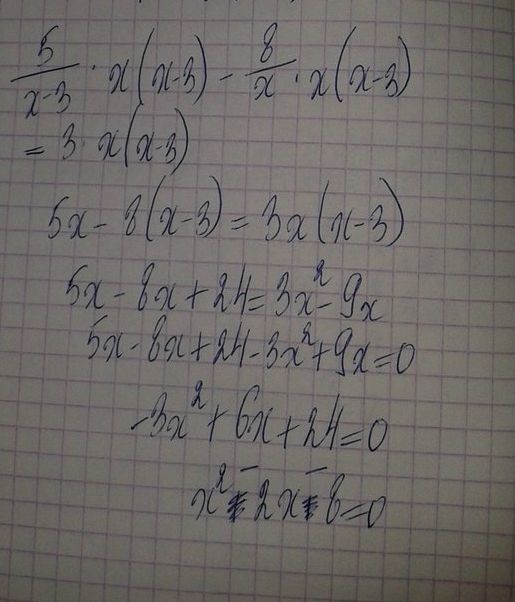 5/(x-3) · x(x-3) - 8/x · x(x-3)
= 3 · x(x-3)
5x - 8(x-3) = 3x(x-3)
5x - 8x + 24 = 3x² - 9x
5x - 8x + 24 - 3x² + 9x = 0
-3x² + 6x + 24 = 0
x² - 2x - 8 = 0